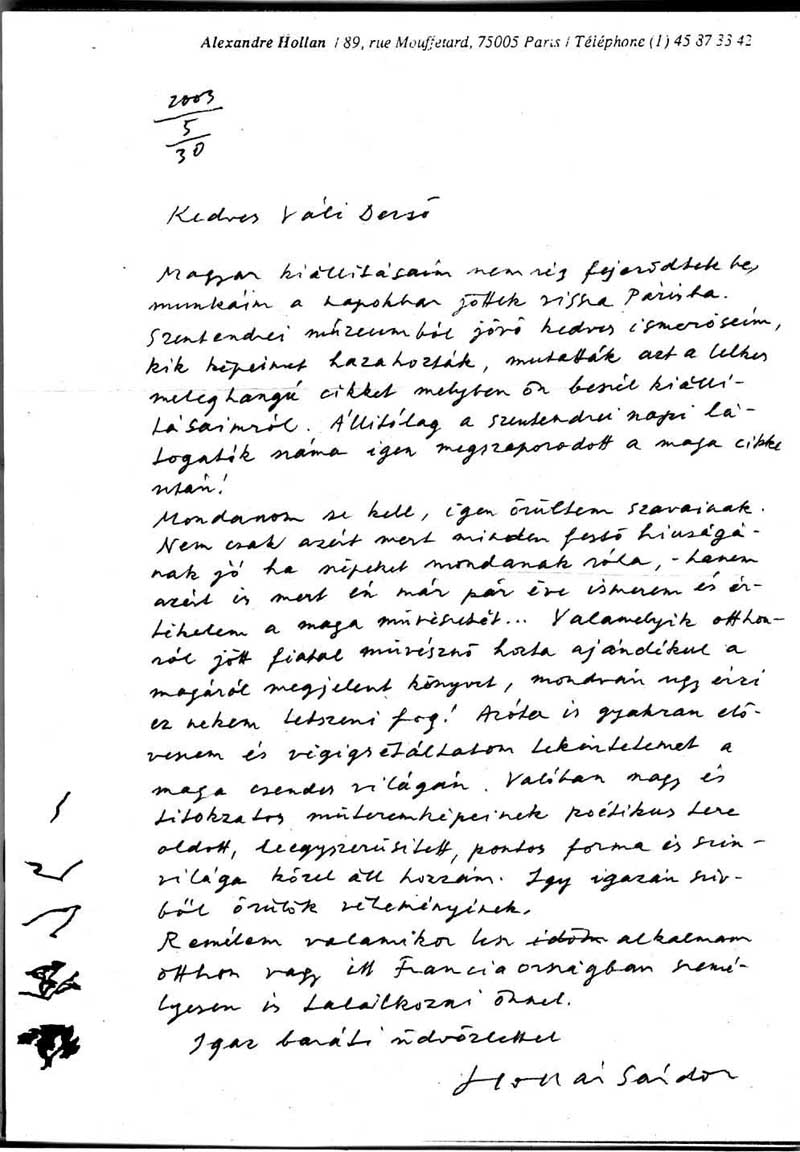 Alexandre Hollan / 89, rue Mouffetard, 75005 Paris / Téléphone (1) 45 87 33 42
2003
5
30
Kedves Váli Dezső
Magyar kiállitásaim nem rég fejeződtek be,
munkáim a napokban jöttek vissza Párisba.
Szentendrei múzeumból jövő kedves ismerőseim,
kik képeimet hazahozták, mutatták azt a lelkes
meleghangú cikket melyben Ön beszél kiálli-
tásaimról. Állitólag a szentendrei napi lá-
togatók száma igen megszaporodott a maga cikke
után!
Mondanom se kell, igen örültem szavainak.
Nem csak azért mert minden festő hiuságá-
nak jó ha szépeket mondanak róla, - hanem
azért is mert én már pár éve ismerem és ér-
tékelem a maga művészetét... Valamelyik otthon-
ról jött fiatal művésznő hozta ajándékul a
magáról megjelent könyvet, mondván ugy érzi
ez nekem tetszeni fog! Azóta is gyakran elő-
veszem és végigsétáltatom tekintetemet a
maga csendes világán. Valóban nagy és
titokzatos műteremképeinek poétikus tere
oldott, leegyszerüsitett, pontos forma és szin-
világa közel áll hozzám. Igy igazán sziv-
ből örülök véleményének.
Remélem valamikor lesz időm alkalmam
otthon vagy itt Franciaországban szemé-
lyesen is találkozni Önnel.
Igaz baráti üdvözlettel
Hollán Sándor